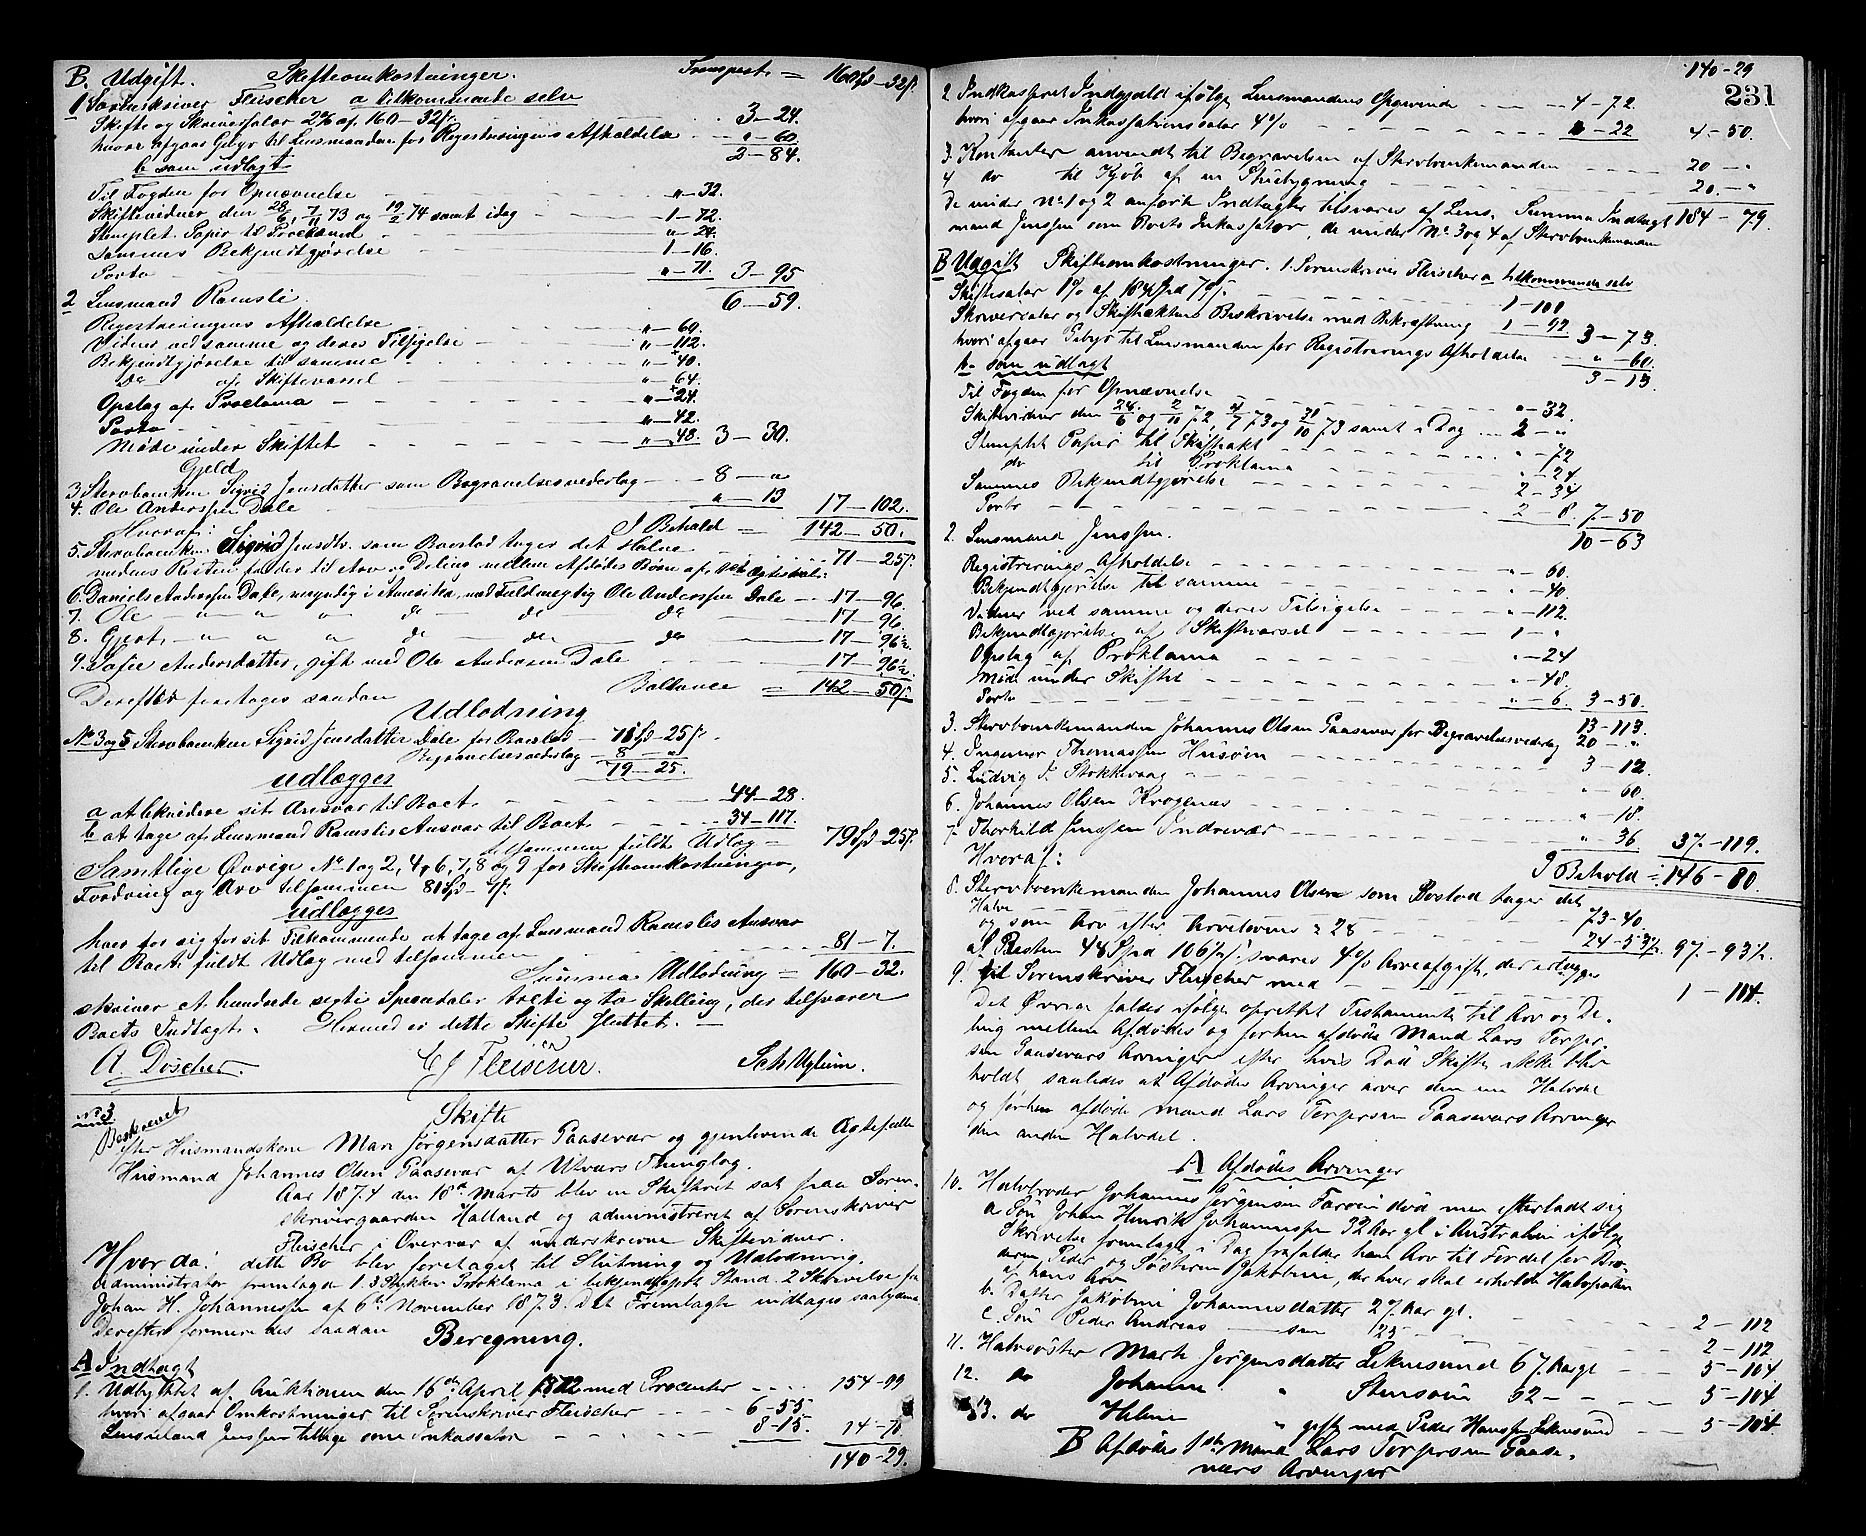 B. Udgift. Skifteomkostninger. Transport = 160 Spd - 32 ß.
1 Sorenskriver Fleischer a tilkommende selv
Skifte og Skriversalær 2% af 160 - 32 ß. 3 - 24.
hvoraf afgaar Gebyr til Lensmanden for Registreringens Afholdelse " - 60
2 - 84.
b som udlagt
Til Fogden for Opnævnelse " - 32.
Skiftevidner den 28/6, 7/11 73 og 19/2 74 samt idag 1 - 72.
Stemplet Papir til Proclama " - 24.
Sammes Bekjendtgjørelse 1 - 16.
Porto " - 71. 3 - 95
6 - 59.
2 Lensmand Ramsli.
Registreringens Afholdelse " - 60.
Vidner ved samme og deres Tilsigelse " - 112.
Bekjendtgjørelse til samme " - 40.
Do af Skiftevarsel " - 64.
Opslag af Proclama " - 24.
Porto " - 42.
Møde under Skiftet " - 48. 3 - 30.
Gjeld
3 Stervboenken Sigrid Jensdatter som Begravelsesvederlag 8 - "
4. Ole Anderssen Dale " - 13 17 - 102.
Hvoraf: I Behold = 142 - 50.
5. Stervboenken Sigrid Jensdtr. som Boeslod tager det Halve 71 - 25 ß.
medens Resten falder til Arv og Deling mellem Afdødes Børn af Ægteskab:
6. Daniel Anderssen Dale, myndig i Amerika, ved Fuldmegtig Ole Anderssen Dale 17 - 96.
7. Ole " " " do do do 17 - 96.
8. Gjert " " " do do do 17 - 96½.
9. Sofie Andersdatter, gift med Ole Andersen Dale 17 - 96½.
Derefter foretages saadan Ballance = 142 - 50 ß.
Udlodning
No 3 og 5 Stervboenken Sigrid Jensdatter Dale for Boeslod 71 Spd - 25 ß.
Begravelsesvederlag 8 - "
79 - 25.
udlægges
a at likvidere sit Ansvar til Boet 44 - 28.
b at tage af Lensmand Ramslis Ansvar til Boet 34 - 117.
tilsammen fuldt Udlæg = 79 Spd - 25 ß.
Samtlige Øvrige No 1 og 2, 4, 6, 7, 8 og 9 for Skifteomkostninger,
Fordring og Arv tilsammen 81 Spd - 7 ß.
udlægges
hver for sig for sit Tilkommende at tage af Lensmand Ramslis Ansvar
til Boet fuldt Udlæg med tilsammen 81 - 7.
Summa Udlodning = 160 - 32.
skriver et hundrede segti Speciedaler treti og to Skilling, der tilsvarer
Boets Indtægt. Hermed er dette Skifte sluttet.
A. Döscher. C J Fleischer. Sch Uglum.
No 3
Beskrevet
Skifte
efter Huusmandskone Mari Jørgensdatter Gaasevær og gjenlevende Ægtefælle
Husmand Johannes Olsen Gaasevær af Utvær Thinglag.
Aar 1874 den 18de Marts blev en Skifteret sat paa Soren-
skrivergaarden Halland og administreret af Sorenskriver
Fleischer i Overvær af underskrevne Skiftevidner.
Hvor da: dette Bo blev foretaget til Slutning og Udlodning.
Administrator fremlagde 1. 3 Stykker Proklama i bekjendtgjort Stand. 2 Skrivelse fra
Johan H. Johannessen af 6te November 1873. Det Fremlagte indtages saalydende
Derefter formeredes saadan Beregning.
A Indtægt
1. Udbyttet af Auktionen den 16de April 1872 med Procenter 154 - 99
hvori afgaar Omkostninger til Sorenskriver Fleischer 6 - 55
Lensmand Jenssen tillige som Inkassator 8 - 15. 14 - 70
140 - 29.
140 - 29
231
2 Indkasseret Indgjæld ifølge Lensmandens Opgivende 4 - 72.
hvori afgaar Inkassationssalær 4% " - 22 4 - 50.
3. Kontanter anvendt til Begravelsen af Stervboenkemanden 20 - "
4 do til Kjøb af en Skibygning 20. - "
De under No 1 og 2 anførte Indtægter tilsvares af Lens- Summa Indtægt 184 - 79.
mand Jenssen som Boets Inkassator, de under No 3 og 4 af Stervboenkemanden
B Udgift Skifteomkostninger. 1. Sorenskriver Fleischer a tilkommende selv
Skiftesalær 1% af 184 Spd 79 ß. 1 - 101
Skriversalær og Skifteaktens Beskrivelse med Bekræftning 1 - 92 3 - 73.
hvori afgaar Gebyr til Lensmanden for Registrerings Afholdelse " - 60.
b som udlagt 3 - 13.
Til Fogden for Opnævnelse " - 32.
Skiftevidner den 28/6 og 2/10 72, 4/7 73 og 30/10 73 samt i Dag 2 - "
Stemplet Papir til Skifteakt " - 72
do til Proklama " - 24
Sammes Bekjendtgjørelse 2 - 34
Porto 2 - 8. 7 - 50
10 - 63
2. Lensmand Jenssen.
Registrerings Afholdelse " - 60.
Bekjendtgjørelse til samme " - 40.
Vidner ved samme og deres Tilsigelse " - 112.
Bekjendtgjørelse af Skiftevarsel 1 - "
Opslag af Proklama " - 24
Møde under Skiftet " - 48.
Porto " - 6. 3 - 50
13 - 113.
3. Stervboenkemanden Johannes Olsen Gaasevær for Begravelsesvederlag 20 - "
4. Ingemor Thomassen Husøen 3 - 12.
5. Ludvig I. Stokkevaag " - 60.
6. Johannes Olsen Krogenæs " - 18.
7. Thorkild Jenssen Indrevær " - 36 37 - 119.
Hvoraf: I Behold = 146 - 80.
8. Stervboenkemanden Johannes Olsen som Boslod tager det
Halve 73 - 40.
og som Arv efter Arveloven 24 - 53½. 97 - 93½.
af Resten 48 Spd 106½ ß. svares 4% Arveafgift, der udlægges
9. til Sorenskriver Fleischer med 1 - 114.
Det Øvrige falder ifølge oprettet Testamente til Arv og De-
ling mellem Afdødes og forhen afdøde Mand Lars Torger-
sen Gaaseværs Arvinger efter hvis Død Skifte ikke blev
holdt, saaledes at Afdødes Arvinger arver den ene Halvdel
og forhen afdøde Mand Lars Torgersen Gaaseværs Arvinger
den anden Halvdel.
A Afdødes Arvinger
10. Halvbroder Johannes Jørgensen Farøen død men efterladt sig
a. Søn Johan Henrik Johannessen 32 Aar gl. i Australien ifølge
Skrivelse fremlagt i Dag frafalder han Arv til Fordel for Bro-
deren Peder og Søsteren Jakobine, der hver skal erholde Halvparten
af hans Arv
b. Datter Jakobine Johannesdatter 27 Aar gl. 2 - 112
c. Søn Peder Andreas sen 23 2 - 112
11. Halvsøster Marte Jørgensdatter Liknesund 67 Aar gl 5 - 104
12. do Johanne " Stensøen 62 5 - 104
13. do Helene " gift med Peder Hanssen Liknesund 5 - 104
B Afdødes 1ste Mand Lars Torgersen Gaase-
værs Arvinger